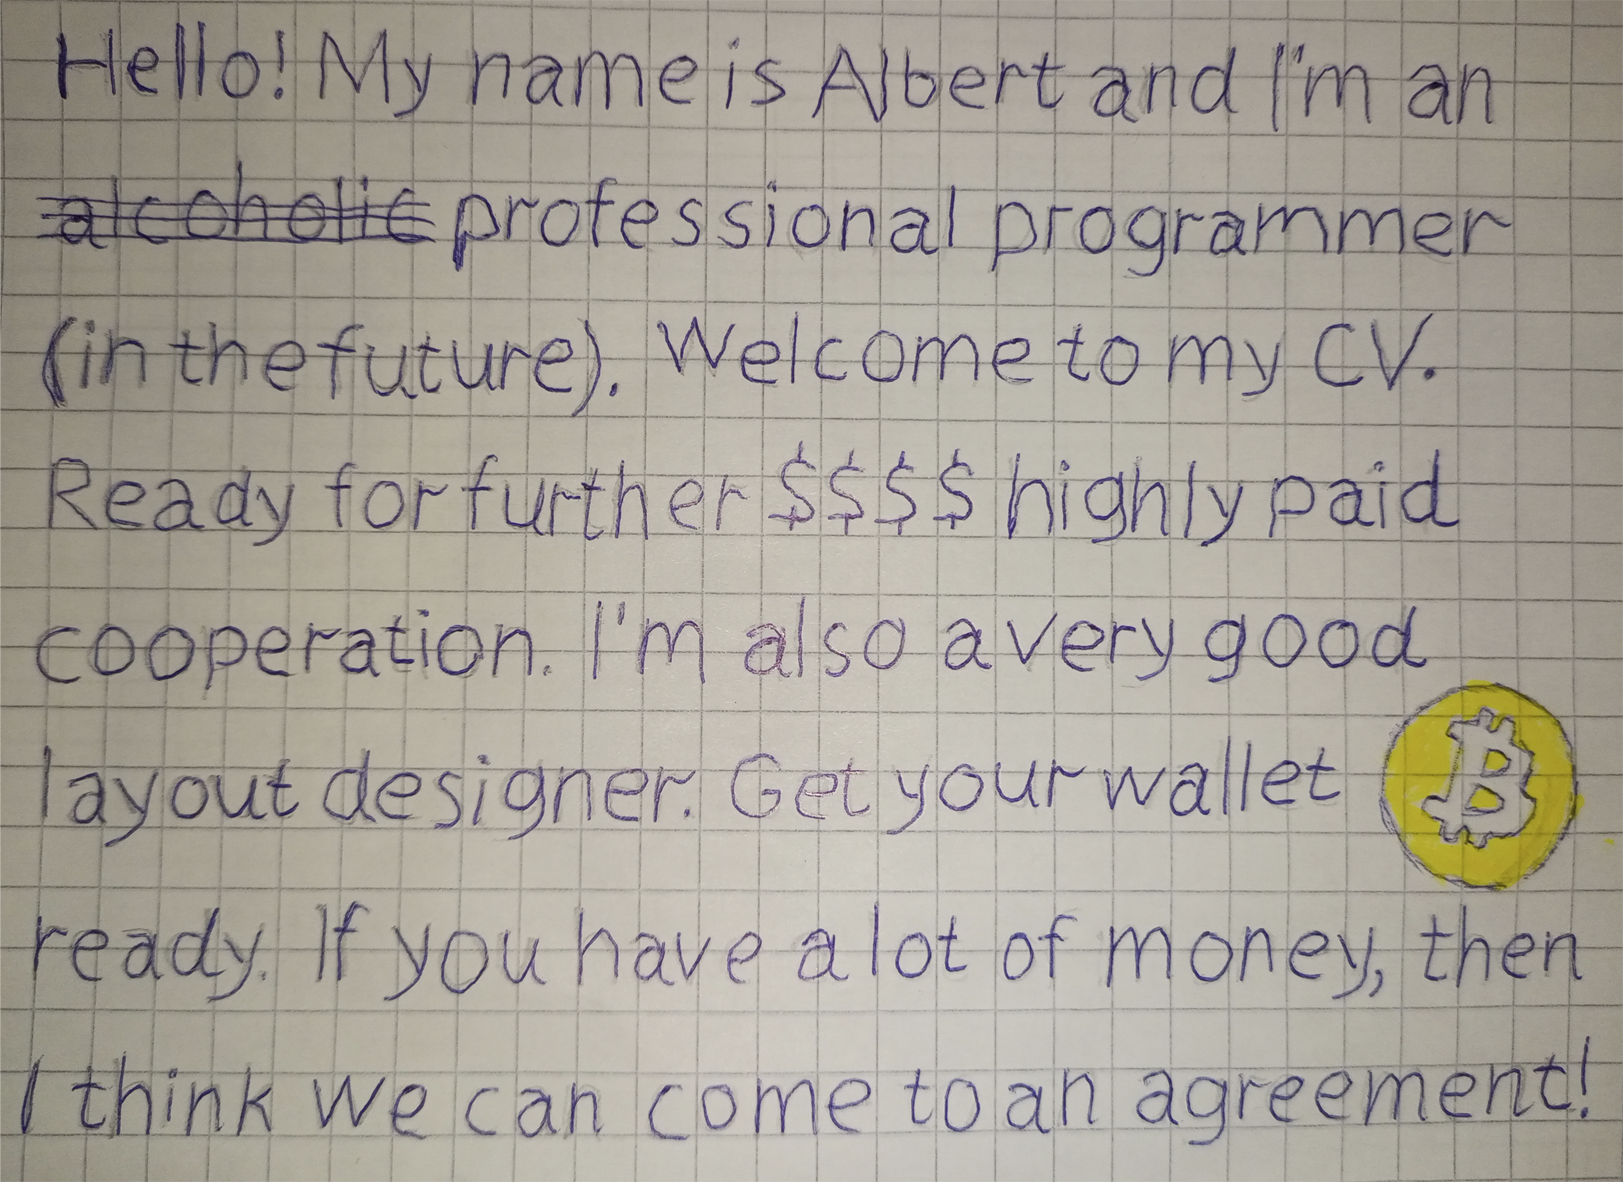 Hello! My name is Albert and I'm an
alcoholic professional programmer
(in the future). Welcome to my CV.
Ready for further $$$$ highly paid
cooperation. I'm also a very good
layout designer. Get your wallet ₿
ready. If you have a lot of money, then
I think we can come to an agreement!